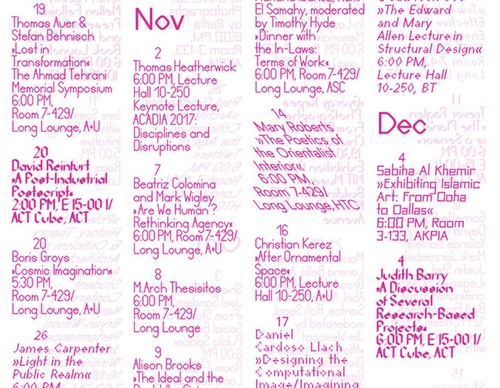 19
Thomas Auer &
Stefan Behnisch
»Lost in
Transformation«
The Ahmad Tehrani
Memorial Symposium
6:00 PM,
Room 7-429/
Long Lounge, A+U
20
David Reinfurt
»A Post-Industrial
Postscript«
2:00 PM, E 15-001/
ACT Cube, ACT
20
Boris Groys
»Cosmic Imagination«
5:30 PM,
Room 7-429/
Long Lounge, A+U
26
James Carpenter
»Light in the
Public Realm«
6:00 PM
Nov
2
Thomas Heatherwick
6:00 PM, Lecture
Hall 10-250
Keynote Lecture,
ACADIA 2017:
Disciplines and
Disruptions
7
Beatriz Colomina
and Mark Wigley
»Are We Human?
Rethinking Agency«
6:00 PM, Room 7-429/
Long Lounge, A+U
8
M.Arch Thesisitos
6:00 PM,
Room 7-429/
Long Lounge
9
Alison Brooks
»The Ideal and the
El Samahy, moderated
by Timothy Hyde
»Dinner with
the In-Laws:
Terms of Work«
6:00 PM, Room 7-429/
Long Lounge, ASC
14
Mary Roberts
»The Poetics of
the Orientalist
Interior«
6:00 PM,
Room 7-429/
Long Lounge, HTC
16
Christian Kerez
»After Ornamental
Space«
6:00 PM, Lecture
Hall 10-250, A+U
17
Daniel
Cardoso Llach
»Designing the
Computational
Image/Imagining
»The Edward
and Mary
Allen Lecture in
Structural Design«
6:00 PM,
Lecture Hall
10-250, BT
Dec
4
Sabiha Al Khemir
»Exhibiting Islamic
Art: From Doha
to Dallas«
6:00 PM, Room
3-133, AKPIA
4
Judith Barry
»A Discussion
of Several
Research-Based
Projects«
6:00 PM, E15-001/
ACT Cube, ACT